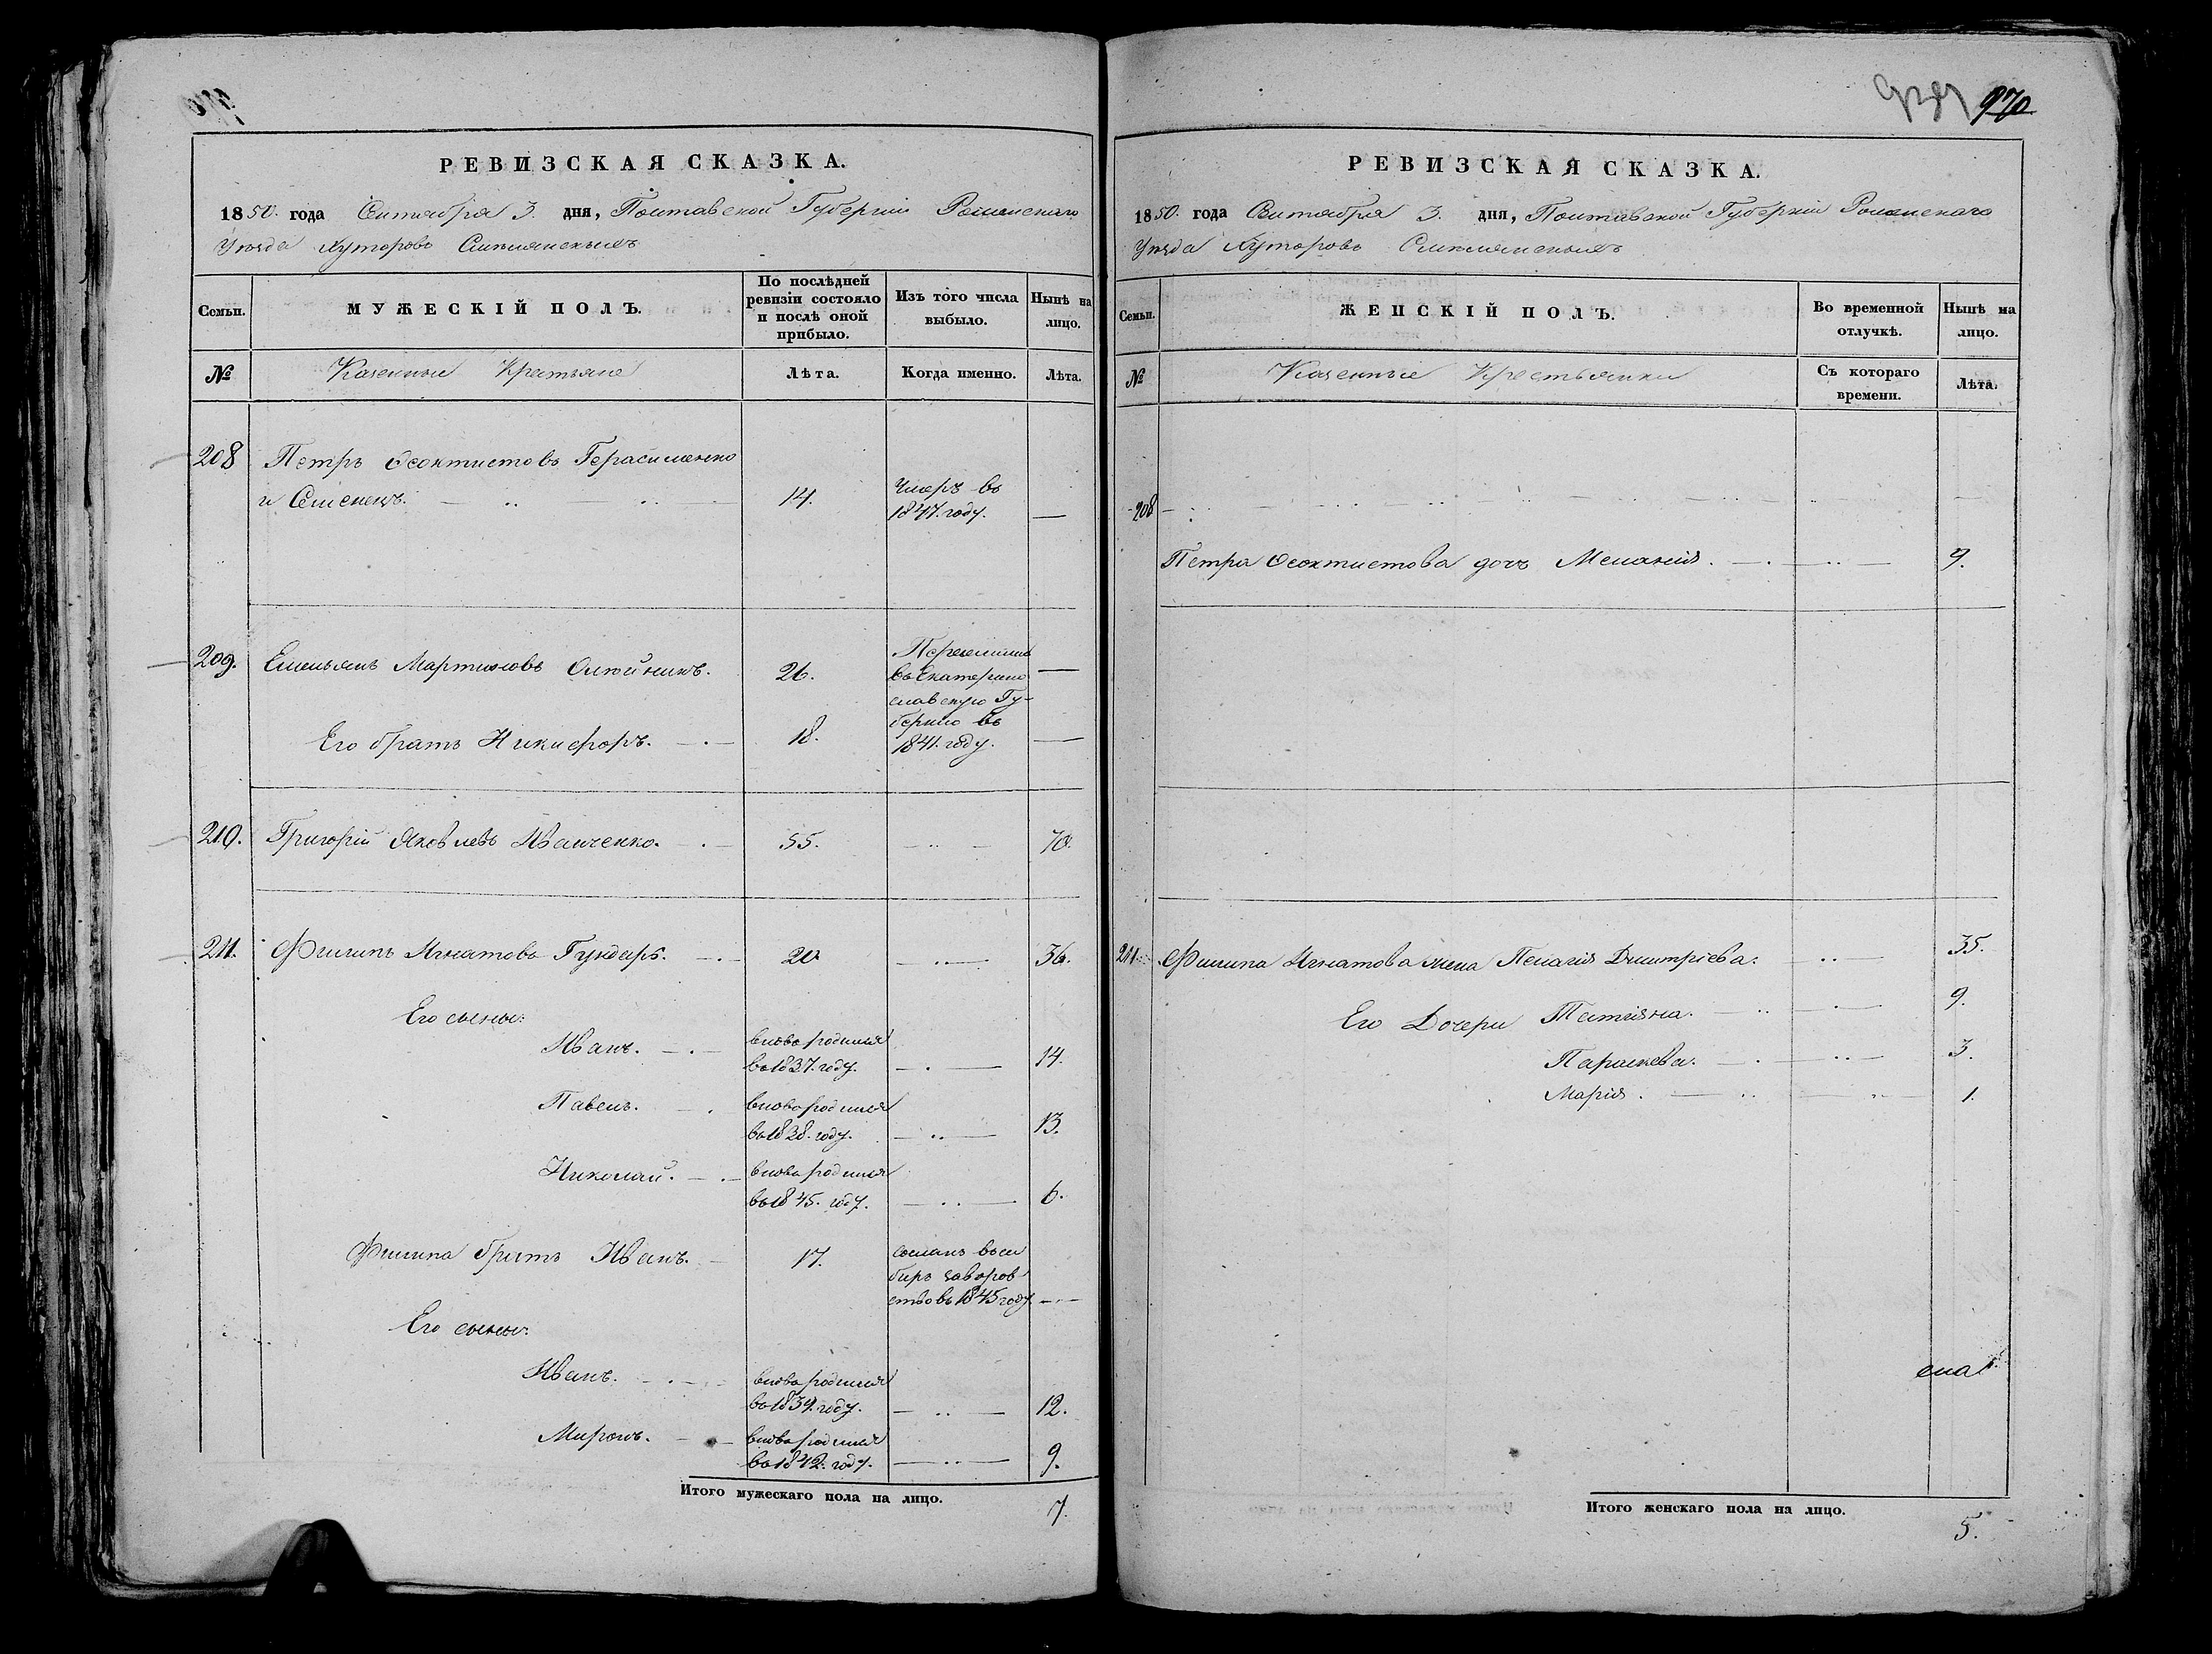 970
РЕВИЗСКАЯ СКАЗКА.
1850. года Сентября 3. дня, Полтавской Губернии Роменскаго
Уезда Хуторовъ
МУЖЕСКІЙ ПОЛЪ.
По послѣдней ревизіи состояло и послѣ оной прибыло.
Изъ того числа выбыло.
Нынѣ на лицо.
Семьи.
№ Казенные Крестьяне Лѣта. Когда именно. Лѣта.
208 Петръ Ѳеоктистовъ Герасименко
и 14. Умеръ въ
1847. году. —
209. Емельянъ Мартиновъ Олійникъ. 26. —
въ Екатерино
славскую Гу-
Его братъ Никифоръ. 18. бернію въ
1841. году. —
210. Григорій Яковлевъ Иванченко. 55. 70.
211. Филипъ Игнатовъ Гундеръ. 20 36.
Его сыны:
Иванъ. вновь родился
въ 1837. году. 14.
Павелъ. вновь родился
въ 1838. году. 13.
Николай. вновь родился
въ 1845. году. 6.
Филипа братъ Иванъ. 17. сосланъ въ Си
бирь за воров
ство въ 1845 году.
Его сыны:
Иванъ. вновь родился
въ 1839. году. 12.
Миронъ. вновь родился
въ 1842. году. 9.
Итого мужескаго пола на лицо. 7.
РЕВИЗСКАЯ СКАЗКА.
1850. года Сентября 3. дня, Полтавской Губерніи Роменскаго
Уезда Хуторовъ
Семьи. ЖЕНСКІЙ ПОЛЪ. Во временной отлучкѣ. Нынѣ на лицо.
№ Казенные Крестьянки Съ котораго времени. Лѣта.
208
Петра Ѳеоктистова дочь Меланія. 9.
211. Филипа Игнатова жена Пелагія Дмитріева. 35.
Его Дочери Татіяна. 9.
Параскева. 3.
Марія. 1.
Итого женскаго пола на лицо. 5.